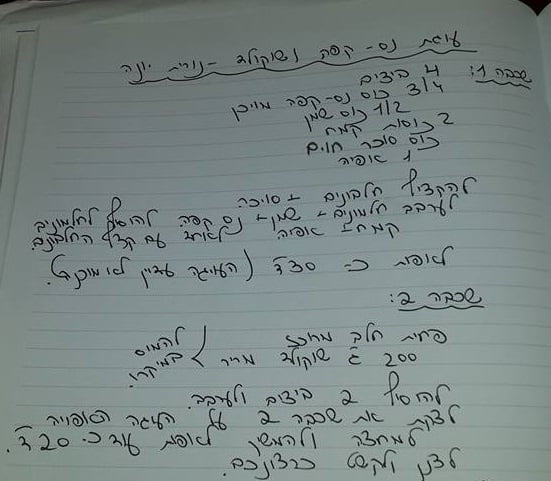 עוגת נס-קפה ושוקולד - נורית יונה
שכבה 1:
4 ביצים
3/4 כוס נס-קפה מוכן
1/2 כוס שמן
2 כוסות קמח
כוס סוכר חום
1 אופיה
להקציף חלבונים + סוכר
לערבב חלמונים + שמן + נס קפה. להוסיף לחלמונים
קמח + אופיה. לאחד עם קצף החלבונים.
לאפות כ- 30 ד' (העוגה עדיין לא מוכנה).
שכבה 2:
פחית חלב מרוכז
200 ג' שוקולד מריר
להמיס
במיקרו.
להוסיף 2 ביצים ולערבב.
לצקת את שכבה 2 על העוגה האפויה
למחצה ולהמשיך לאפות עוד כ- 20 ד'.
לצנן ולקשט כרצונכם.